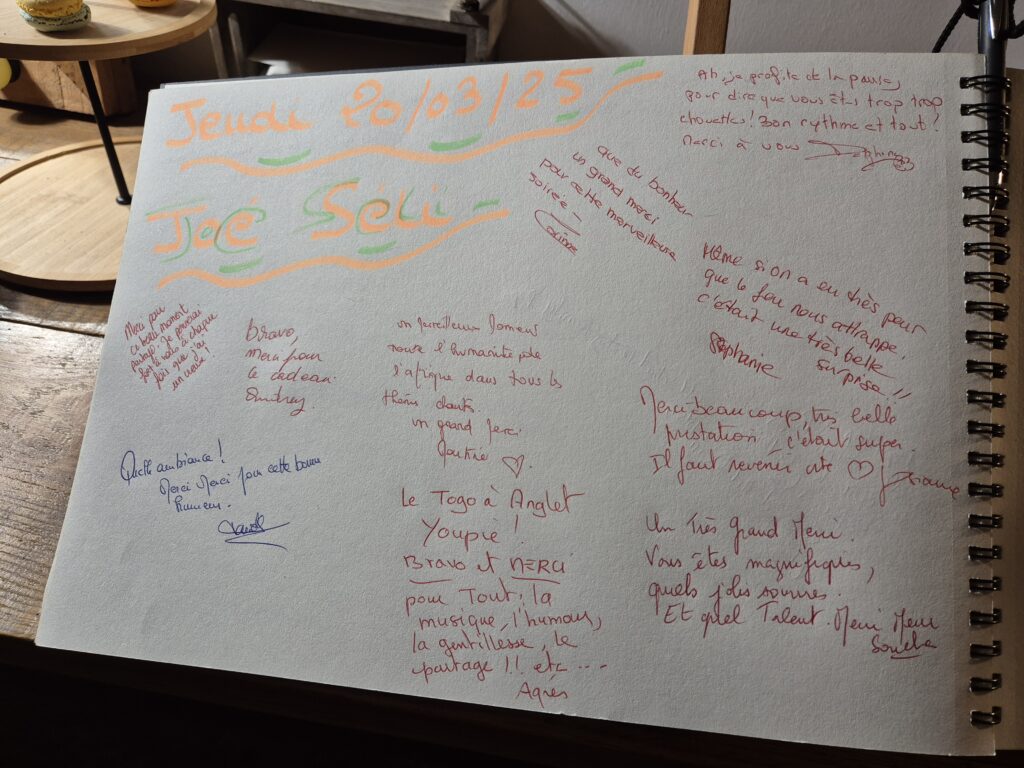 Jeudi 20/03/25
Joé Séli
Ah, je profite de la pause,
pour dire que vous êtes trop trop
chouettes! Bon rythme et tout!
Merci à vous
que du bonheur
un grand merci
pour cette merveilleuse
soirée -
Même si on a eu très peur
que le feu nous attrappe,
c'était une très belle
surprise!!
Stéphanie
Merci pour
ce belle moment
partagé. Je penserai
fois que j'ai
bravo,
merci pour
le cadeau.
Audrey.
un merveilleux
toute l'humanité de
l'afrique dans tous les
thèmes chantés.
un grand merci
Merci beaucoup, très belle
prestation c'était super.
Il faut revenir vite ♡
Quelle ambiance!
Merci Merci pour cette bonne
humeur.
Le Togo à Anglet
Youpie!
Bravo et MERCI
pour Tout: la
musique, l'humour,
la gentillesse, le
partage!! etc ....
Agnès
Un Très Grand Merci.
Vous êtes magnifiques,
quels jolis sourires.
Et quel Talent. Merci Merci